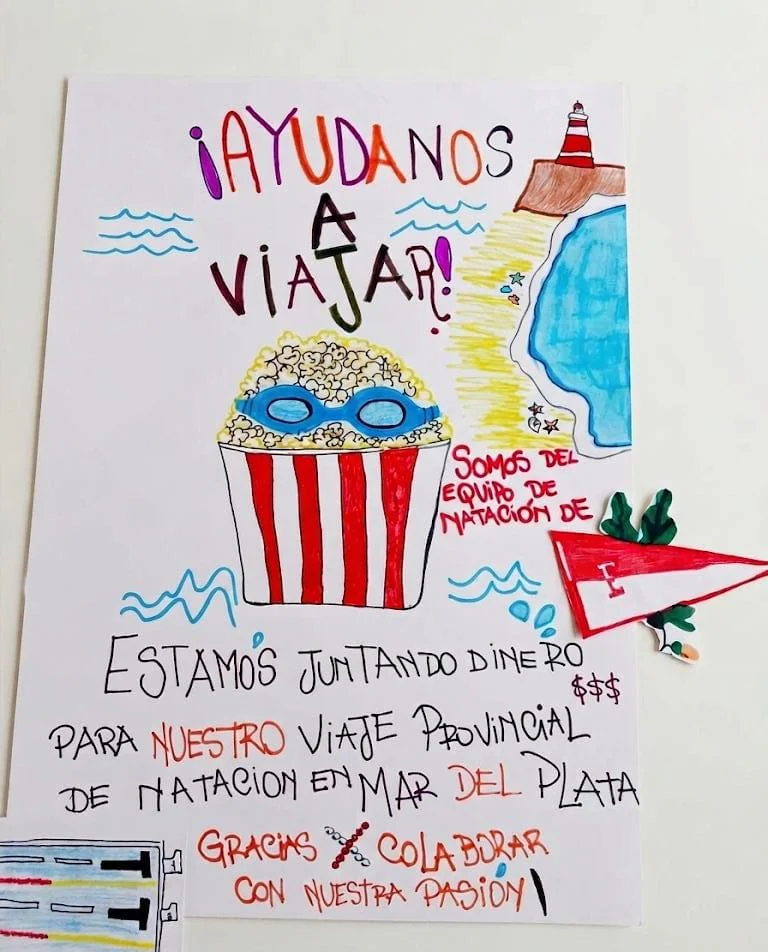 ¡AYUDANOS
A
VIAJAR!
SOMOS DEL
EQUIPO DE
NATACIÓN DE
ESTAMOS JUNTANDO DINERO
$$$
PARA NUESTRO VIAJE PROVINCIAL
DE NATACION EN MAR DEL PLATA
GRACIAS X COLABORAR
CON NUESTRA PASIÓN